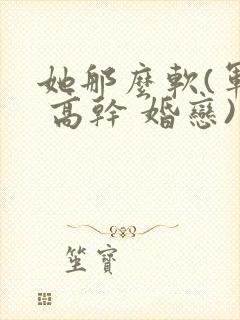 她那麼軟(軍
高幹 婚戀)
笙寶